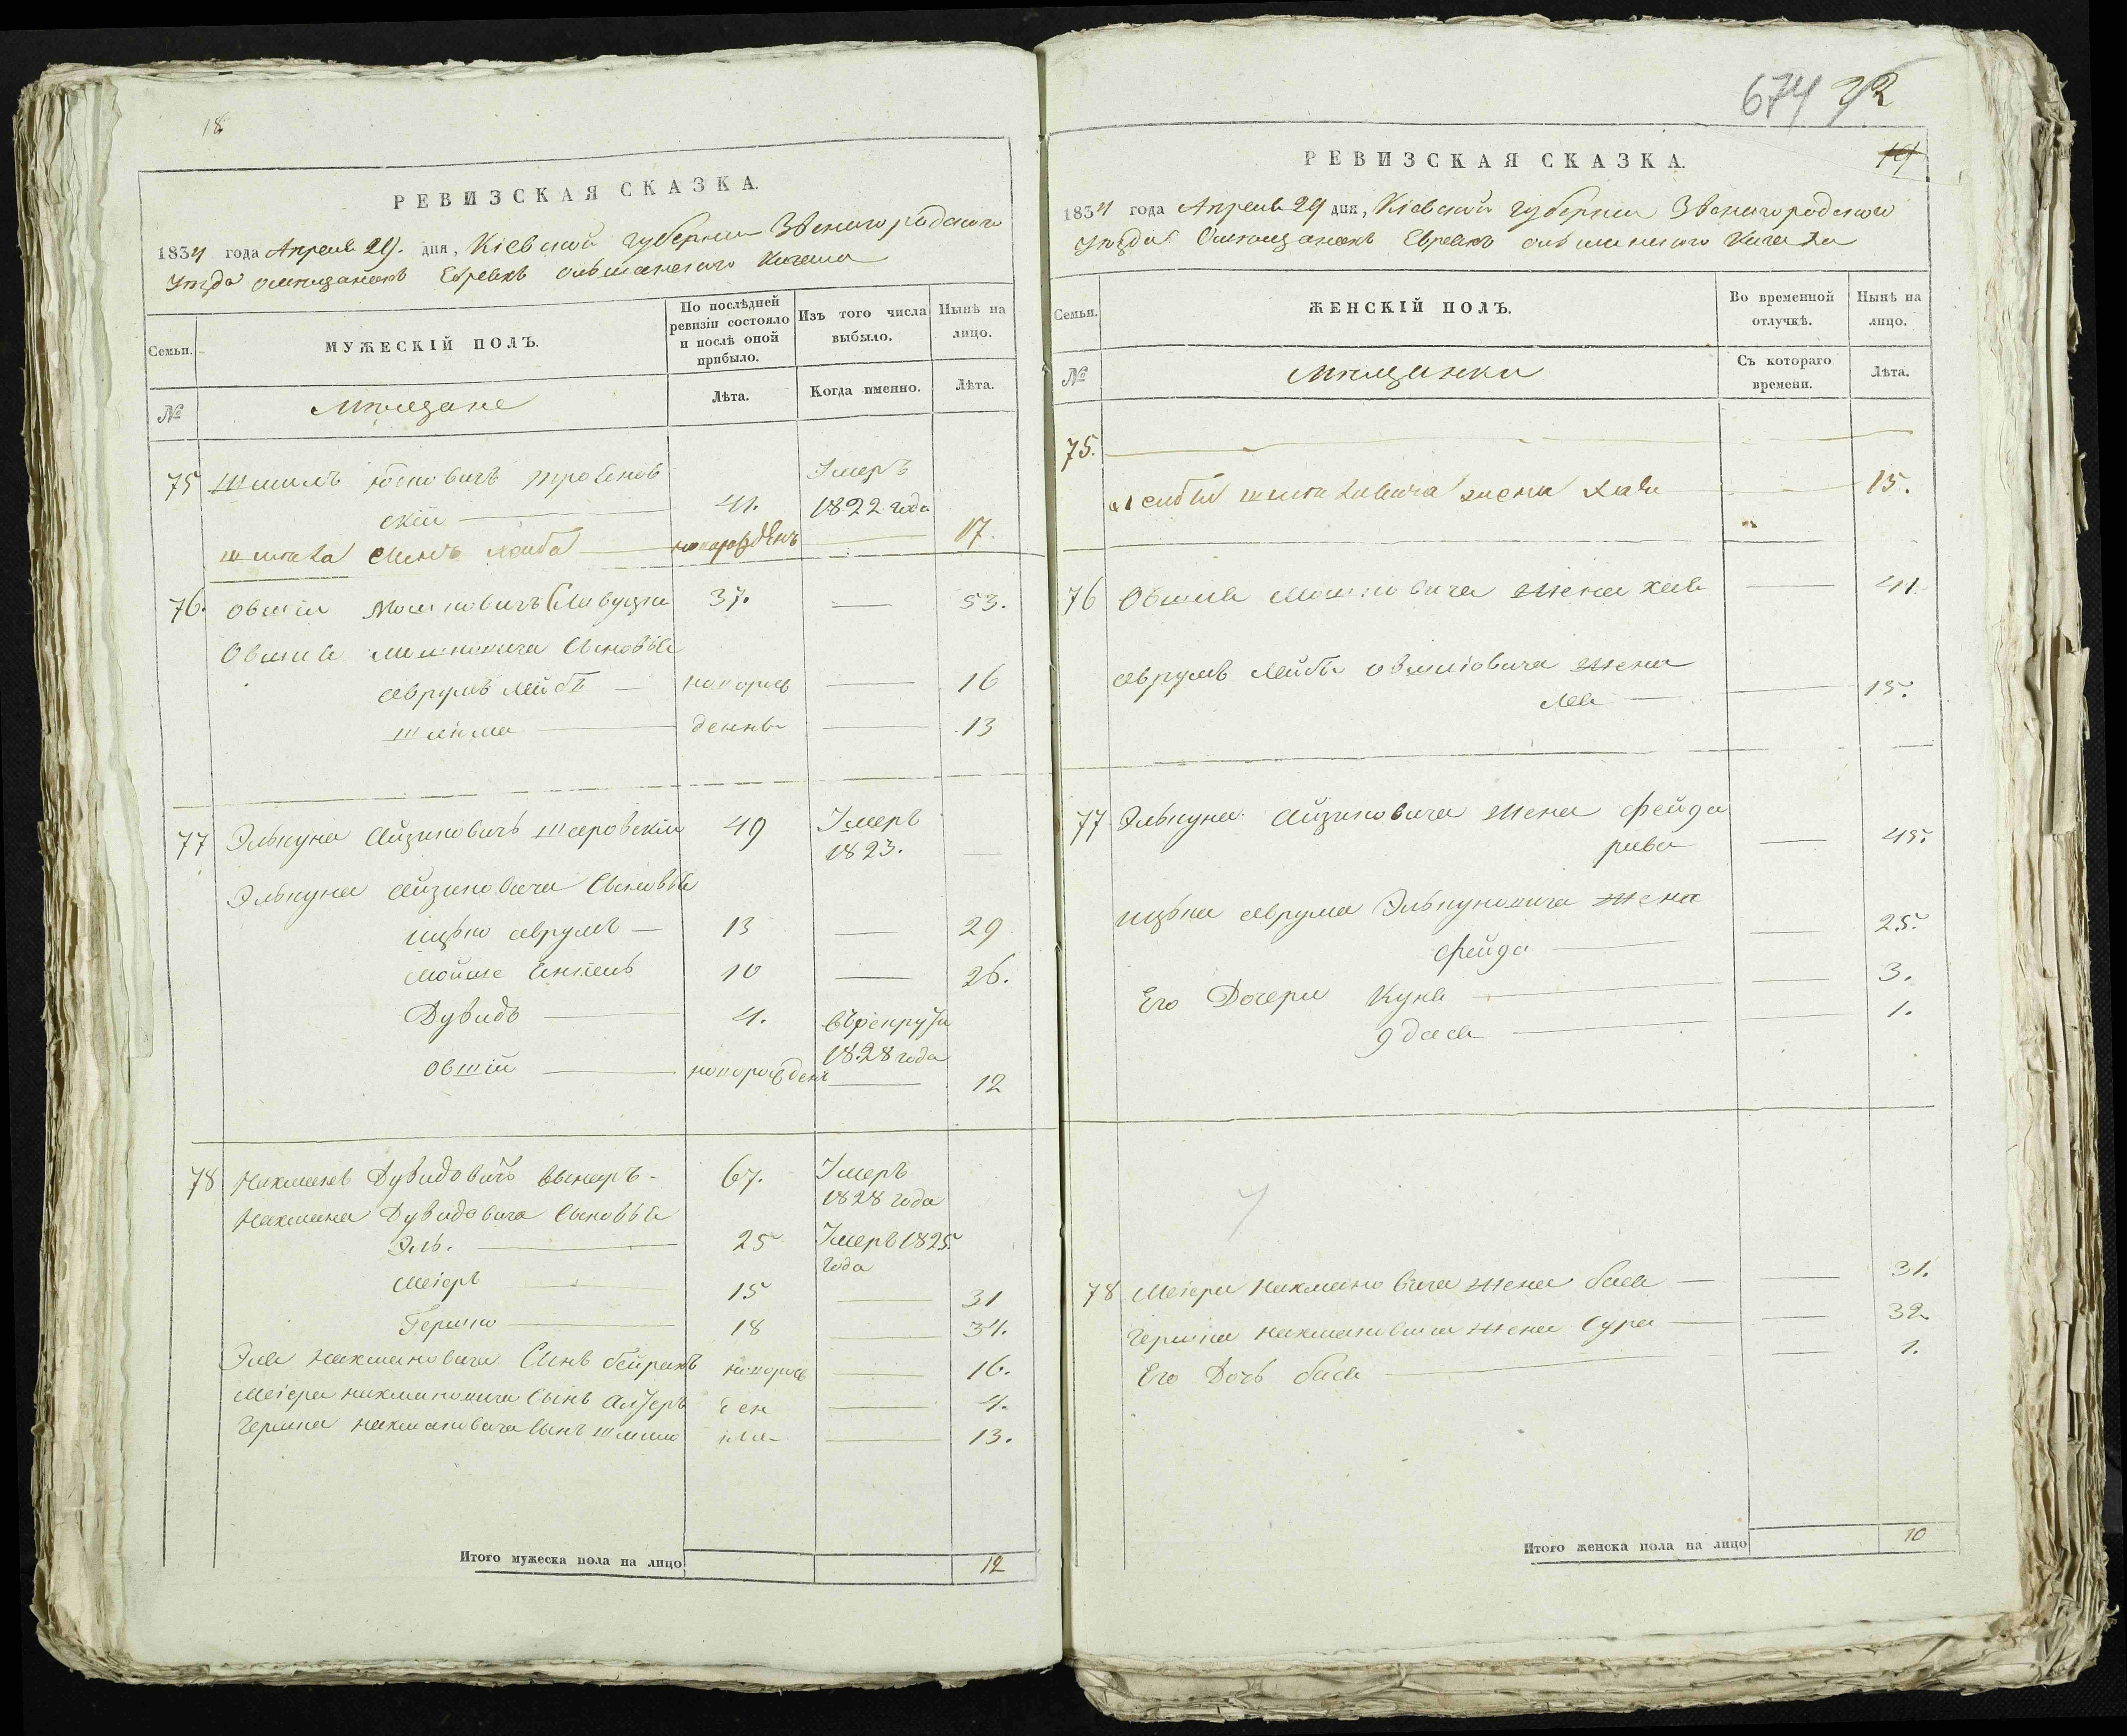 18
РЕВИЗСКАЯ СКАЗКА.
1834 года Апреля 29. дня, Кіевской губерніи Звенигородского
уезда о мещанахъ Евреяхъ ольшанского Кагала
Семьи.
МУЖЕСКІЙ ПОЛЪ.
По послѣдней ревизіи состояло и послѣ оной прибыло.
Изъ того числа выбыло.
Нынѣ на лицо.
№
Мещане
Лѣта.
Когда именно.
Лѣта.
75 Шмиль
скій 41. Умеръ 1822 года
сынъ Лейба новорожденъ 17.
76. Овшій Мошковичъ 37. 53.
Овшія Мошковича Сыновья
Аврумъ Лейбъ новорож 16
Шліома денны 13
77 Элькуна Айзиковичъ Шаровскій 49 Умеръ 1823.
Элькуна Айзиковича Сыновья
Ицько Аврумъ 13 29
Мойше 10 26.
Дувидъ 4. въ рекруты 1828 года
Овшій новорожденъ 12
78 Нахманъ Дувидовичъ 67. Умеръ 1828 года
Нахмана Дувидовича Сыновья
Эль. 25 Умеръ 1825 года
Меіеръ 15 31
Гершко 18 34.
Эля Нахмановича Сынъ новорож 16.
Меіера Нахмановича Сынъ Алтеръ ден 4.
Гершка Нахмановича Сынъ 13.
Итого мужеска пола на лицо 12
674 22
19
РЕВИЗСКАЯ СКАЗКА.
1834 года Апреля 29 дня, Кіевской губерніи Звенигородского
уезда о мещанахъ Евреяхъ ольшанского Кагала
Семьи.
ЖЕНСКІЙ ПОЛЪ.
Во временной отлучкѣ.
Нынѣ на лицо.
№
Мещанки
Съ котораго времени.
Лѣта.
75.
Лейбы жена Хая 15.
76 Овшія Мошковича жена Хая 41.
Аврумъ Лейбы Овшіовича жена
Лея 15.
77 Элькуна Айзиковича жена Фейга
рива 45.
Ицька Аврума Элькуновича жена
Фейга 25.
Его Дочери Куня 3.
1.
78 Меіера Нахмановича жена бася 31.
Гершка Нахмановича жена Сура 32
Его Дочь бася 1.
Итого женска пола на лицо 10